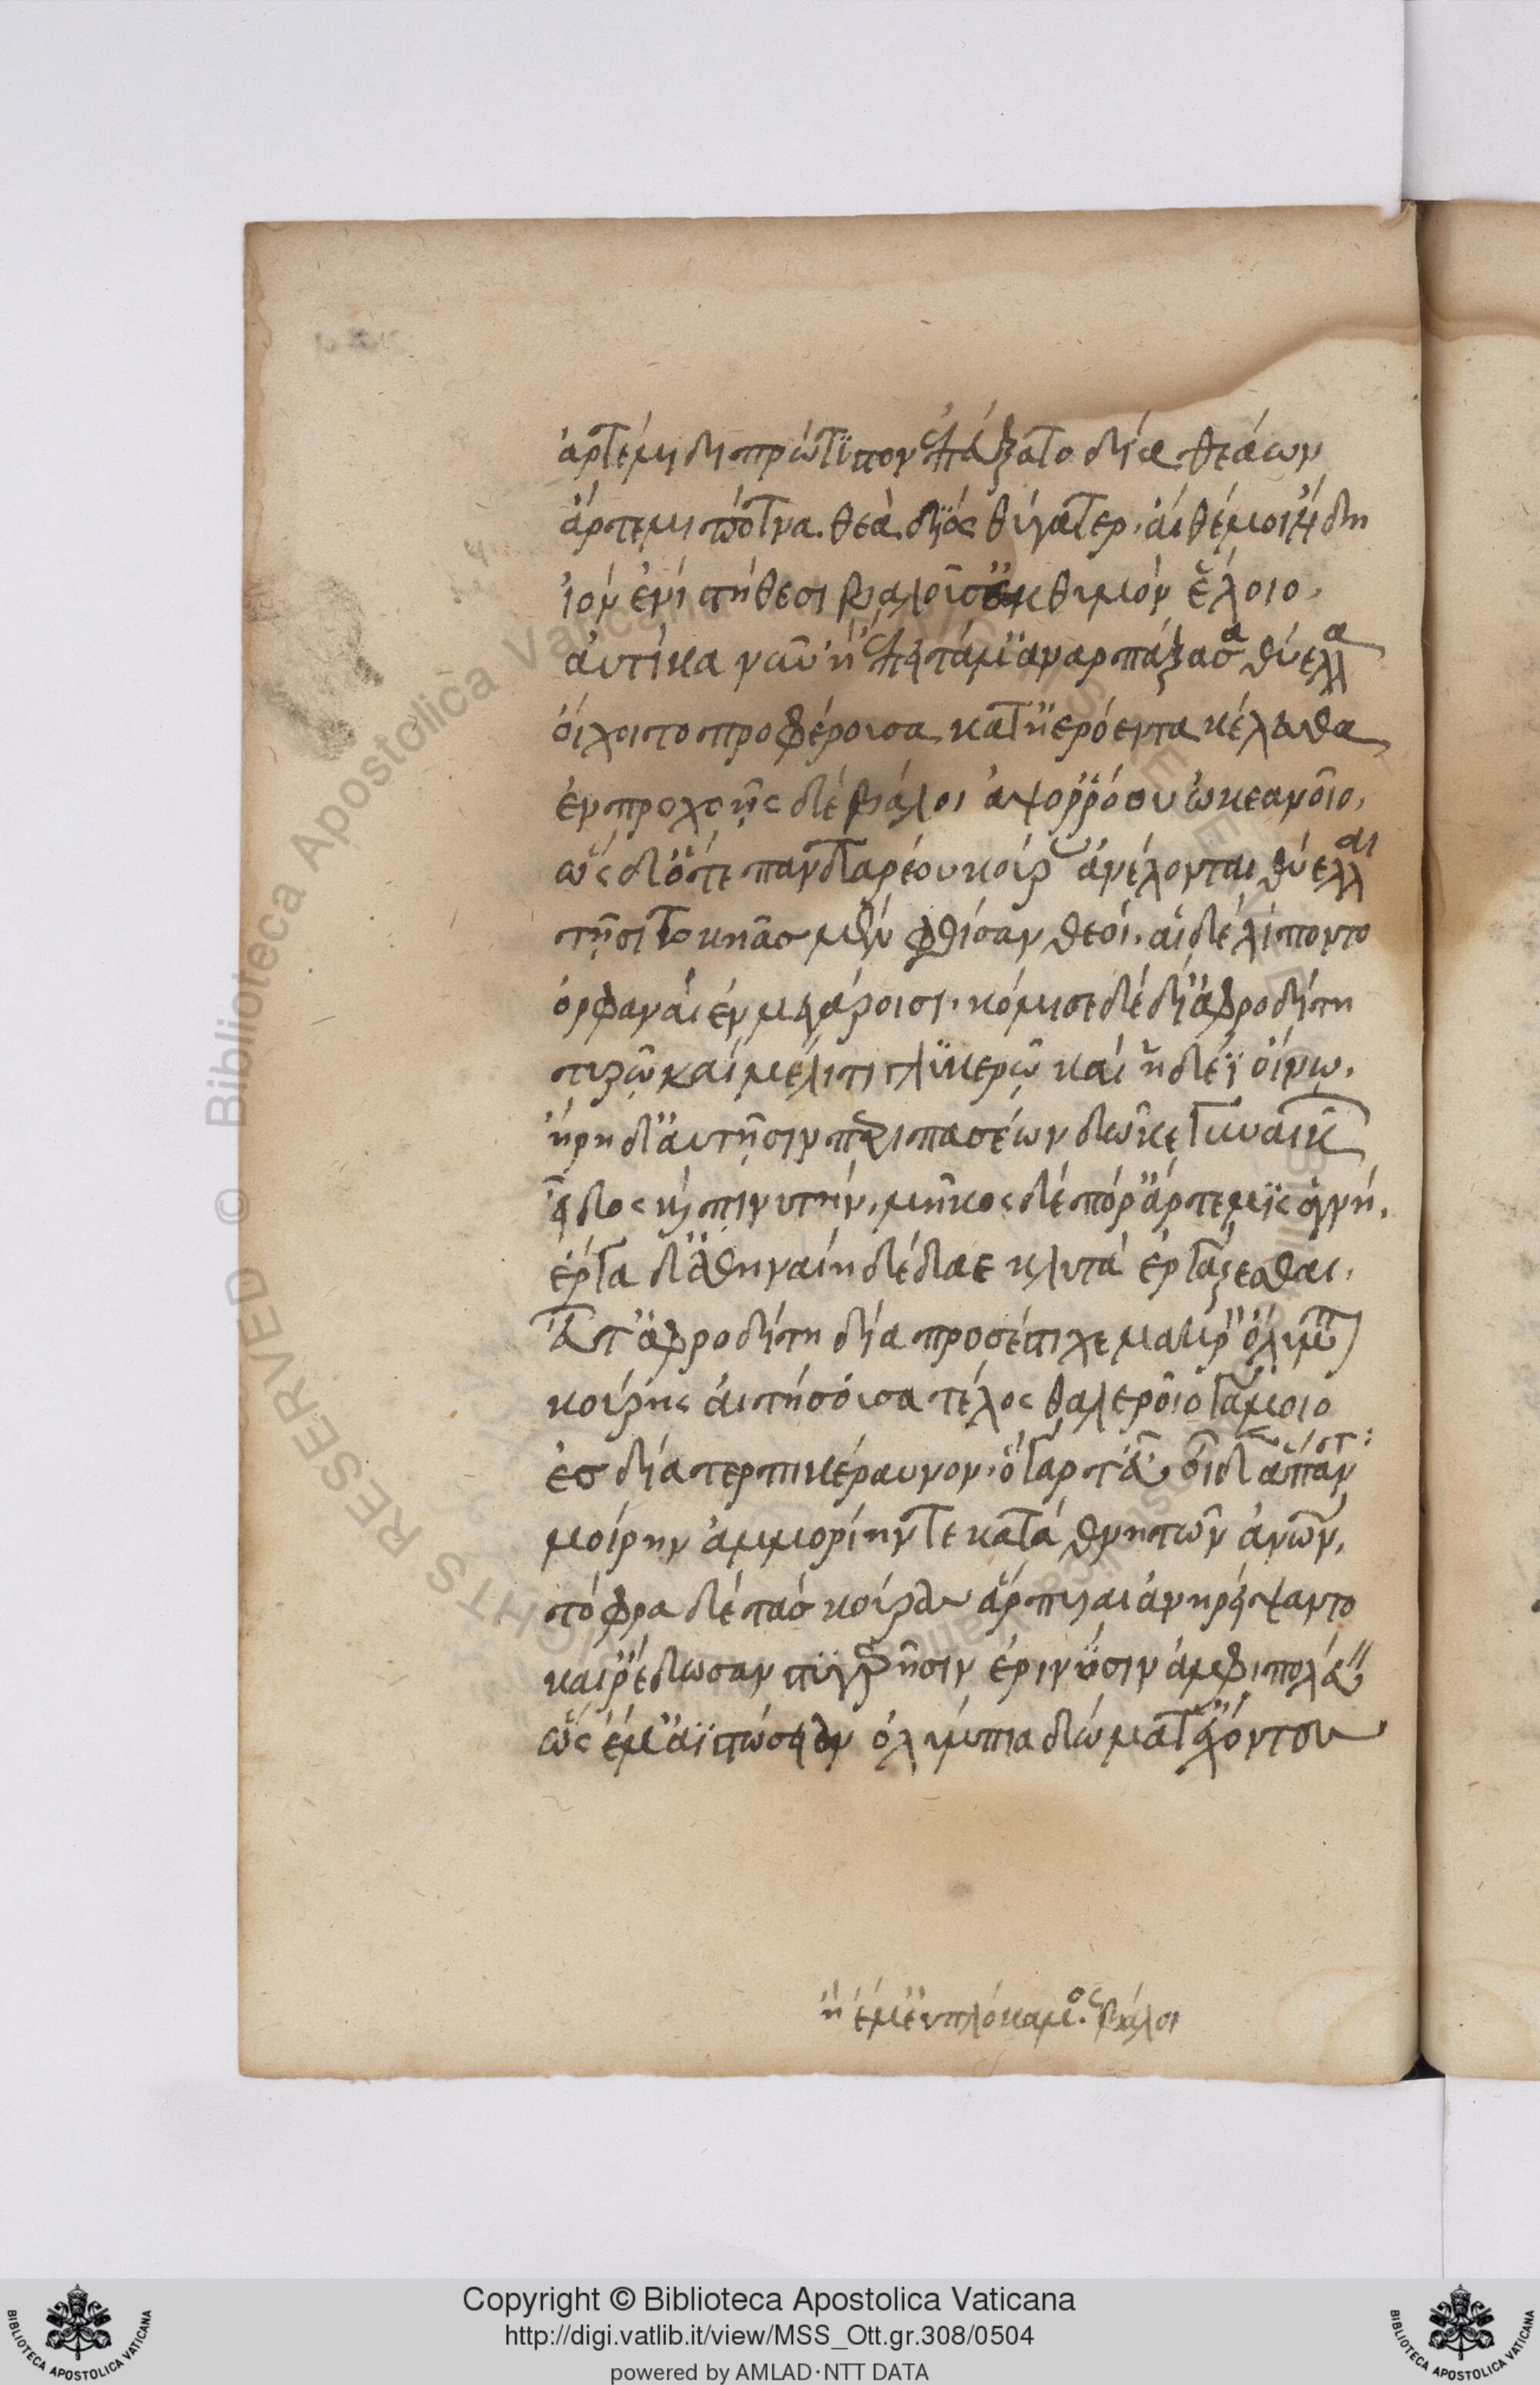 ἀρτέμιδι πρώτϊστον ἐπεύξατο δῖα θεάων
ἄρτεμι πότνα. θεὰ. διὸς θύγατερ. αἴθέ μοι ἤδη
ἰὸν ἐνὶ στήθεσι βαλοῦσ' ἐκ θυμὸν ἕλοιο.
αὐτίκα νῦν· ἢ ἔπειτά μ' ἀναρπάξασα θύελλα
οἴχοιτο προφέρουσα κατ' ἠερόεντα κέλευθα
ἐν προχοῇς δὲ βάλοι ἀψορρόου ὠκεανοῖο.
ὡς δ' ὅτε πανδαρέου κούρας ἀνέλοντο θύελλαι
τῇσι τοκῆας μὲν φθίσαν θεοὶ. αἱ δὲ λίποντο
ὀρφαναὶ ἐν μεγάροισι. κόμισε δὲ δῖ' ἀφροδίτη
τυρῷ καὶ μέλιτι γλυκερῷ καὶ ἡδέϊ οἴνῳ.
ἥρη δ' αὐτῇσιν περὶ πασέων δῶκε γυναικ
εἶδος καὶ πινυτὴν. μῆκος δὲ πόρ' ἄρτεμις ἁγνή.
ἔργα δ' ἀθηναίη δέδαε κλυτὰ ἐργάζεσθαι.
εὖτ' ἀφροδίτη δῖα προσέστιχε μακρ' ὄλυμπ
κούρης αἰτήσουσα τέλος θαλεροῖο γάμοιο
ἐς δία τερπικέραυνον. ὁ γάρ τ' εὖ οἶδεν ἅπαντ
μοῖρην ἀμμορίην τε κατὰ θνητῶν ἀνῶν.
τόφρα δὲ τὰς κούρας ἅρπυιαι ἀνηρείψαντο
καί ῥ' ἔδωσαν στυγερῇσιν ἐρινύσιν ἀμφιπολεύ
ὡς ἔμ' ἀϊστώσειαν ὀλύμπια δώματ' ἔχοντες
ἠέ μ' ἐϋπλόκαμος βάλοι
Copyright © Biblioteca Apostolica Vaticana
http://digi.vatlib.it/view/MSS_Ott.gr.308/0504
powered by AMLAD·NTT DATA